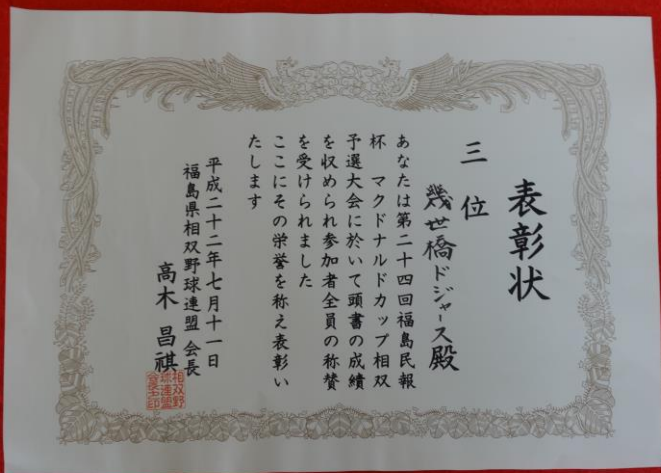 表彰状
三位
幾世橋ドジャース殿
あなたは第二十四回福島民報
杯 マクドナルドカップ相双
予選大会に於いて頭書の成績
を収められ参加者全員の称賛
を受けられました
ここにその栄誉を称え表彰い
たします
平成二十二年七月十一日
福島県相双野球連盟 会長
高木昌祺
相双野
球連盟
会長印